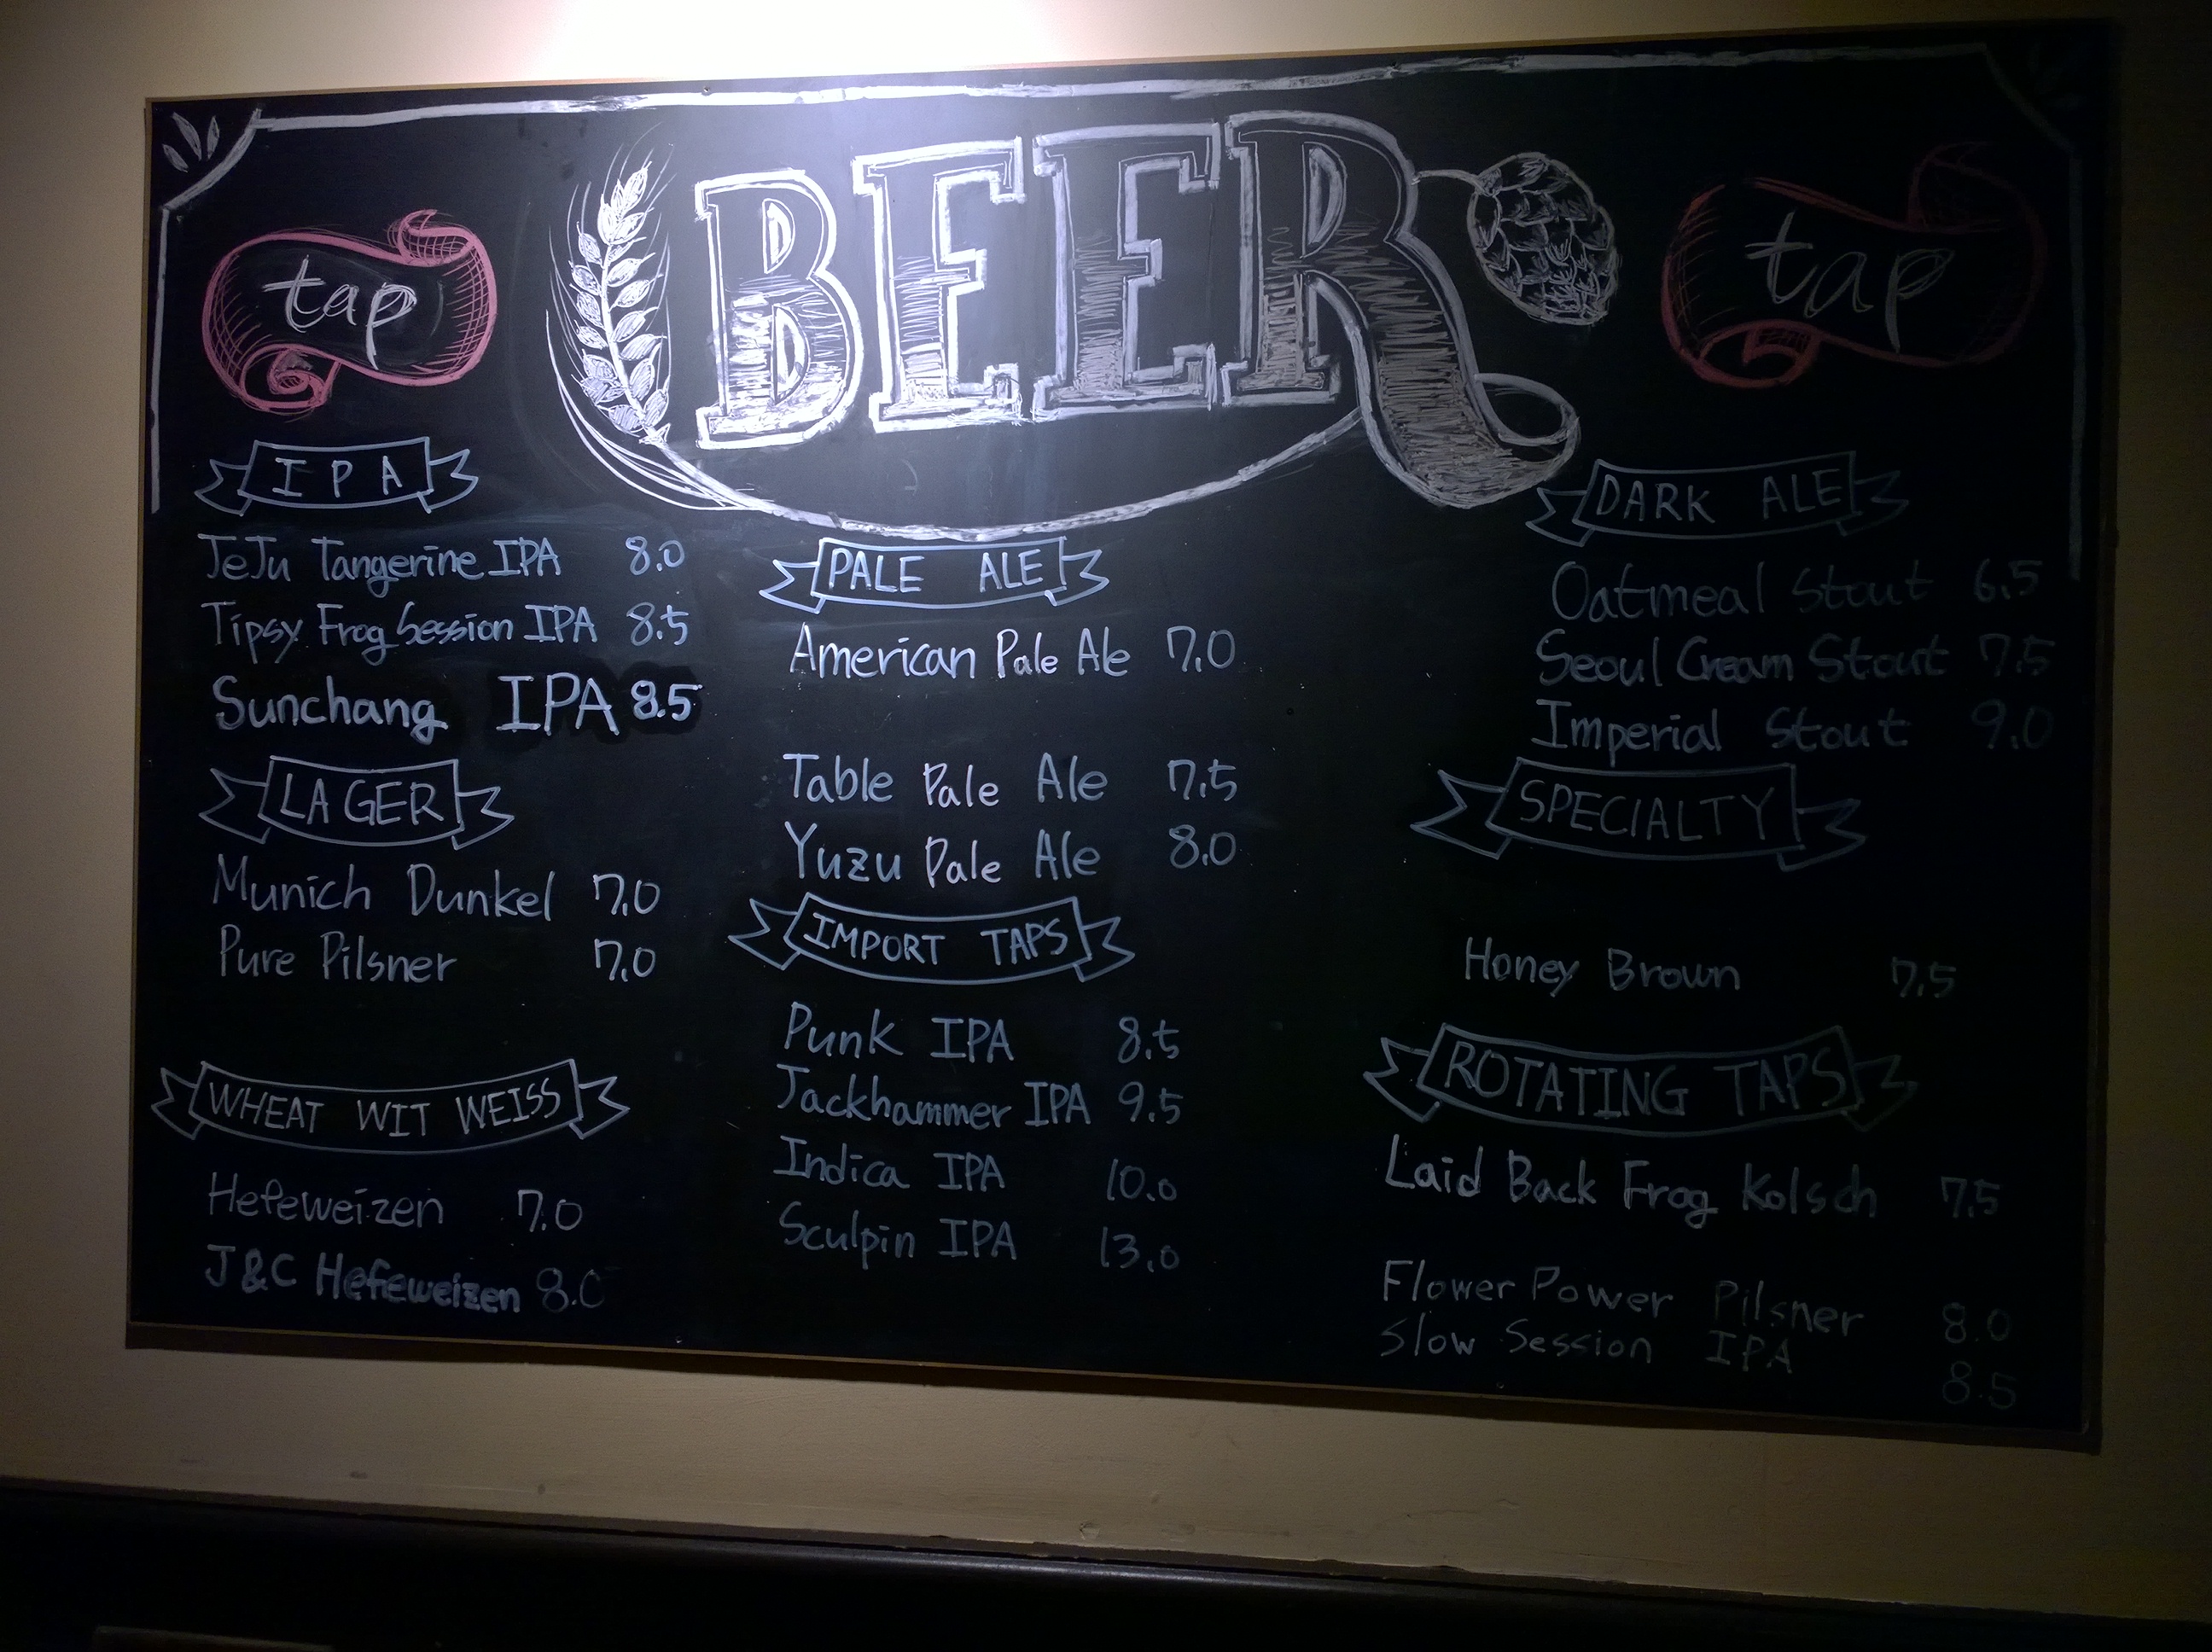 tap
BEER
tap
IPA
JeJu Tangerine IPA 8.0
Tipsy Frog Session IPA 8.5
Sunchang IPA 8.5
LAGER
Munich Dunkel 7.0
Pure Pilsner 7.0
WHEAT WIT WEISS
Hefeweizen 7.0
J&C Hefeweizen 8.0
PALE ALE
American Pale Ale 7.0
Table Pale Ale 7.5
Yuzu Pale Ale 8.0
IMPORT TAPS
Punk IPA 8.5
Jackhammer IPA 9.5
Indica IPA 10.0
Sculpin IPA 13.0
DARK ALE
Oatmeal Stout 6.5
Seoul Cream Stout 7.5
Imperial Stout 9.0
SPECIALTY
Honey Brown 7.5
ROTATING TAPS
Laid Back Frog Kolsch 7.5
Flower Power Pilsner 8.0
Slow Session IPA 8.5